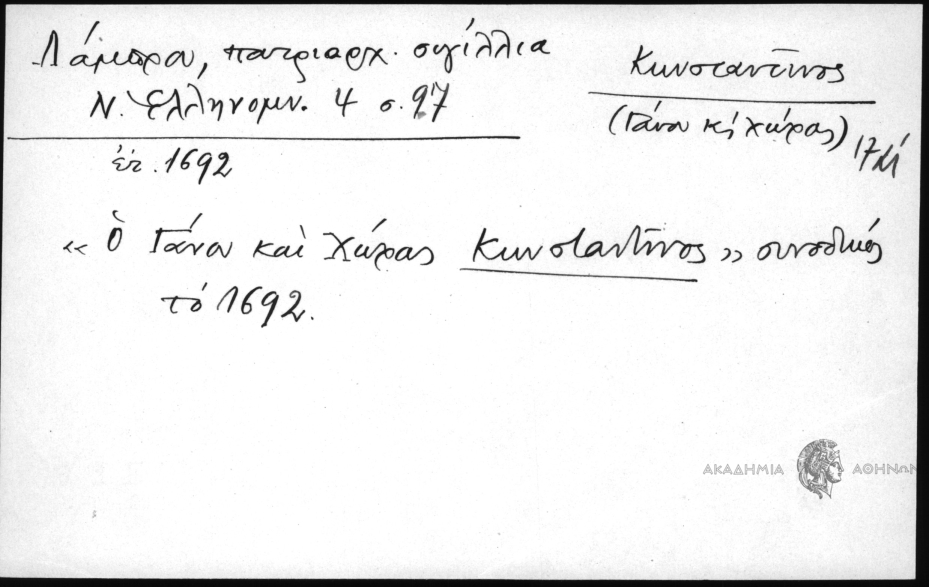 Λάμπρου, πατριαρχ. σιγίλλια
Ν. Ἑλληνομν. 4 σ. 97
ἐτ. 1692
Κωνσταντῖνος
(Γάνου κ Χώρας)
« ὁ Γάνου καὶ Χώρας Κωνσταντῖνος » συνοδικός
τό 1692.
ΑΚΑΔΗΜΙΑ ΑΘΗΝΩΝ